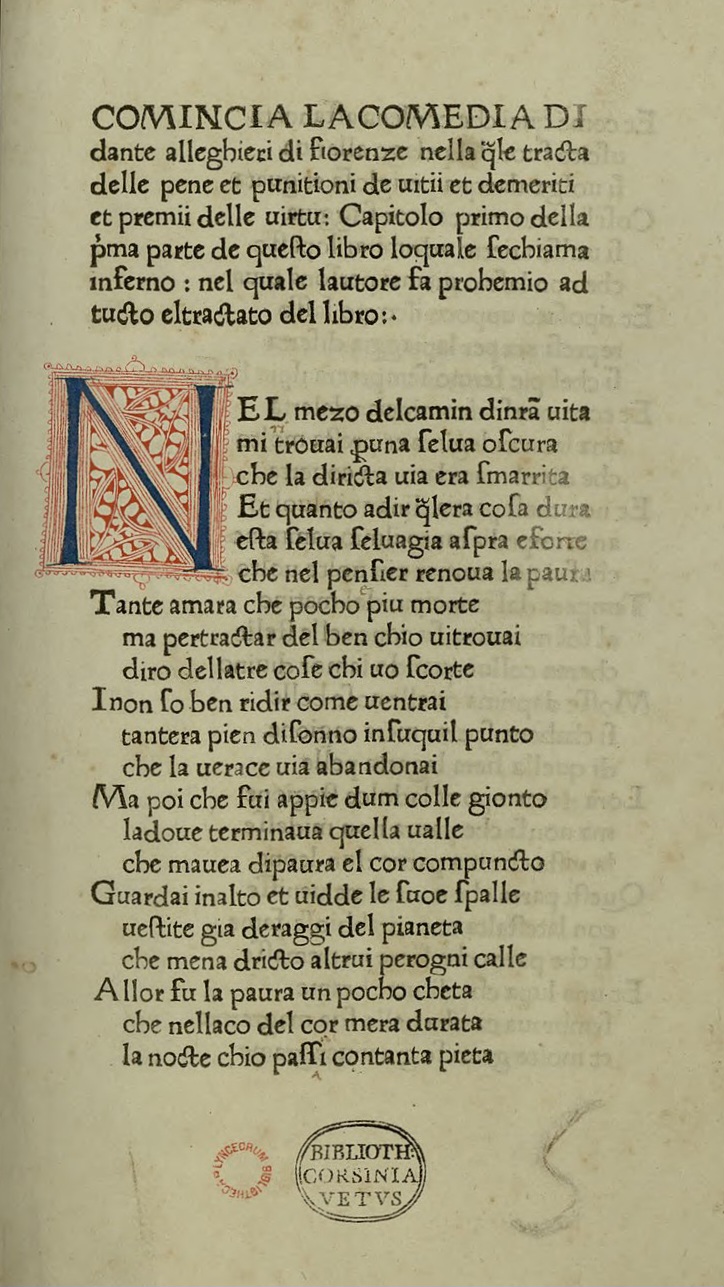 COMINCIA LACOMEDIA DI
dante alleghieri di fiorenze nella q̃le tracta
delle pene et punitioni de uitii et demeriti
et premii delle uirtu: Capitolo primo della
p̓ma parte de queſto libro loquale ſechiama
inferno : nel quale lautore fa prohemio ad
tucto eltractato del libro:·
NEL mezo delcamin dinrã uita
mi trouai ꝑuna ſelua oſcura
che la diricta uia era ſmarrita
Et quanto adir q̃lera coſa dura
eſta ſelua ſeluagia aſpra eforte
che nel penſier renoua la paura
Tante amara che pocho piu morte
ma pertractar del ben chio uitrouai
diro dellatre coſe chi uo ſcorte
Inon ſo ben ridir come uentrai
tantera pien diſonno inſuquil punto
che la uerace uia abandonai
Ma poi che fui appie dum colle gionto
ladoue terminaua quella ualle
che mauea dipaura el cor compuncto
Guardai inalto et uidde le ſuoe ſpalle
ueſtite gia deraggi del pianeta
che mena dricto altrui perogni calle
Allor fu la paura un pocho cheta
che nellaco del cor mera durata
la nocte chio paſſi contanta pieta
LYNCEORUM BIBLIOTHECA
BIBLIOTH.
CORSINIA
VETVS